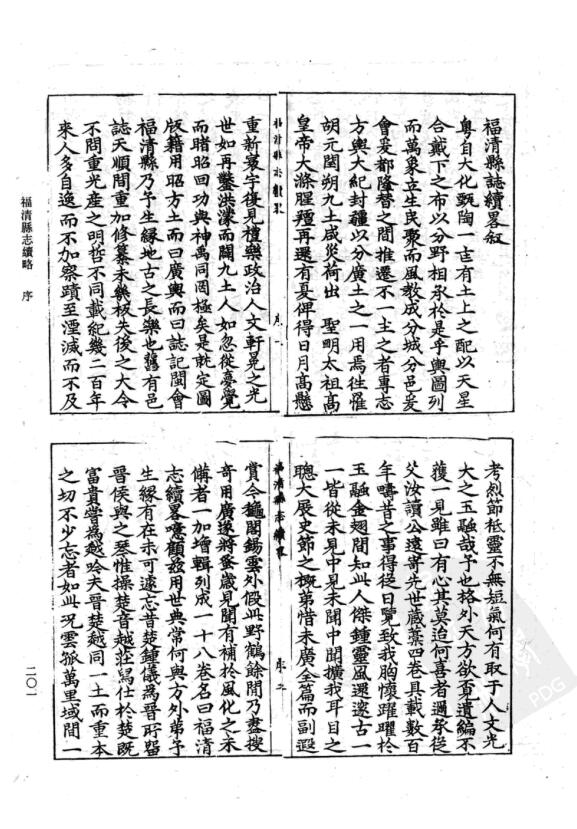 福清縣誌續畧叙
粤自大化甄陶一𠮷有土上之配以天星
合戴下之布以分野相承於是乎輿圖列
而萬象立生民聚而風教成分城分邑爰
會爰都隆替之間推遷不一主之者專志
方輿大紀封疆以分廣土之一用焉徃罹
胡元閏朔九土咸災荷出　聖明太祖高
皇帝大滌腥羶再還有夏俾得日月高懸
福清縣志續畧
序一
重新寰宇復見禮樂政治人文軒冕之光
世如再鑿洪濛而闢九土人如忽從夢覺
而睹昭回功與神禹同罔極矣是就定圖
版籍用昭方土而曰廣輿而曰誌記閩會
福清縣乃予生緣地古之長樂也舊有邑
誌天順間重加修纂未幾板失後之大令
不問重光產之明哲不同載紀幾二百年
來人多自逸而不加察蹟至湮滅而不及
考烈節祇靈不無短氣何有取于人文光
大之玉融哉予也格外天方欲責遺編不
獲一見雖曰有心其莫迨何喜者遇承從
父汝讚公遠寄先世藏藁四卷具載數百
年疇昔之事得從日覽致我胸懷躍躍於
玉融金翅間知此人傑鍾靈風還邃古一
一皆從未見中見未聞中聞擴我耳目之
聰大展史節之概第惜未廣全篇而副遐
福清縣志續畧
序二
賞今樾閣錫雲外假與野鶴餘閒乃盡搜
奇用廣遂將蚤歲見聞有補於風化之未
備者一加增輯列成一十八卷名曰福清
志續畧噫顧茲用世典常何與方外弟予
生緣有在未可遽忘昔楚鍾儀為晉所留
晉侯與之琴惟操楚音越莊舄仕於楚既
富貴嘗為越吟夫晉楚越同一土而重本
之切不少忘者如此况雲孤萬里域間一
福清縣志續略　序
二〇一
PDG